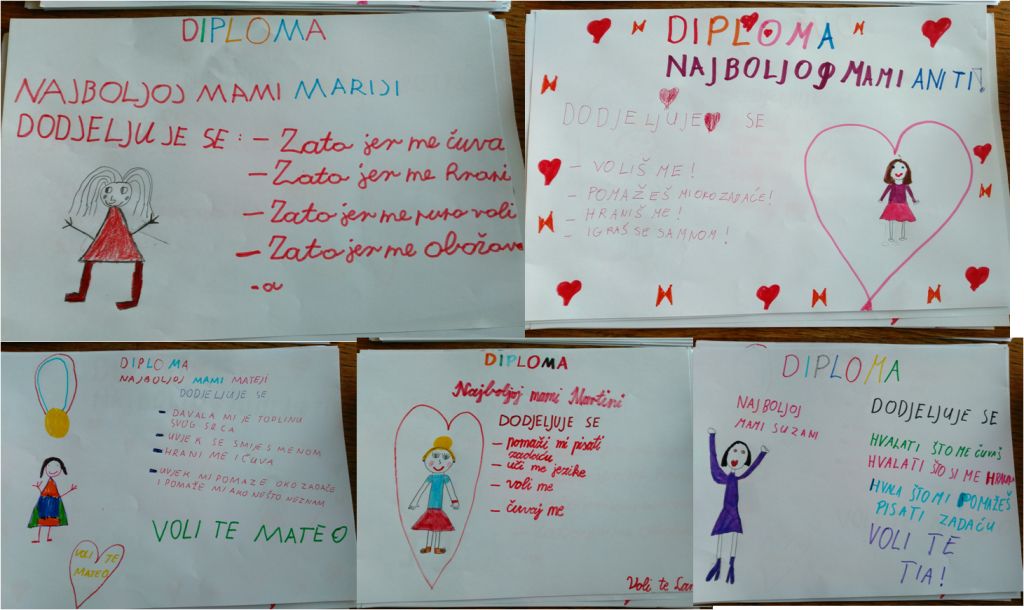 DIPLOMA
NAJBOLJOJ MAMI MARIJI
DODJELJUJE SE: - Zato jer me čuva
- Zato jer me hrani
- Zato jer me puno voli
- Zato jer me obožava
DIPLOMA
NAJBOLJOJ MAMI ANITI!
DODJELJUJE SE
- VOLIŠ ME!
- POMAŽEŠ MI OKO ZADAĆE!
- HRANIŠ ME!
- IGRAŠ SE SAMNOM!
DIPLOMA
NAJBOLJOJ MAMI MATEJI
DODJELJUJE SE
- DAVALA MI JE TOPLINU
SVOG SRCA
- UVJEK SE SMIJE S MENOM
- HRANI ME I ČUVA
- UVJEK MI POMAŽE OKO ZADAĆE
I POMAŽE MI AKO NEŠTO NEZNAM
VOLI TE MATEO
VOLI TE
MATEO
DIPLOMA
Najboljoj mami Martini
DODJELJUJE SE
- pomaži mi pisati
zadaću
- uči me jezike
- voli me
- čuvaj me
Voli te
DIPLOMA
NAJBOLJOJ
MAMI SUZANI
DODJELJUJE SE
HVALATI ŠTO ME ČUVAŠ
HVALATI ŠTO SI ME
HVALA ŠTO MI POMAŽEŠ
PISATI ZADAĆU
VOLI TE
TIA!